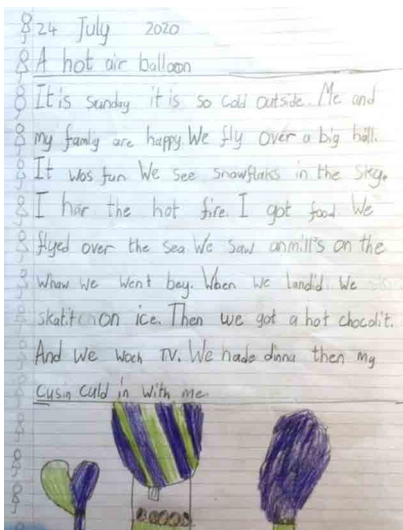 24 July 2020
A hot air balloon
It is sunday it is so cold outside. Me and
my famly are happy. We fly over a big hill.
It wos fun We see snowflaks in the sky.
I har the hot fire. I got food We
flyed over the sea We saw anmills on the
whaw we went bey. When we landid We
skatit on ice. Then we got a hot chocolit.
And we woch TV. We hade dinna then my
cusin culd in with me